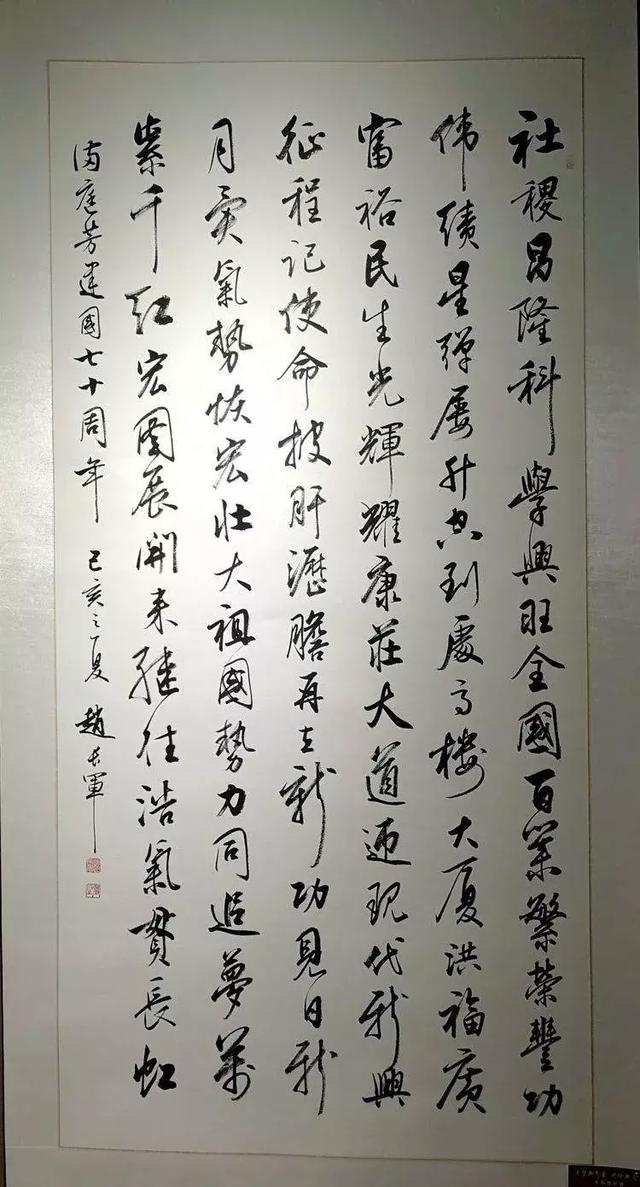 社稷昌隆科學興旺全國百業繁榮豐功
伟績星弹屡升空到處高楼大厦洪福廣
富裕民生光輝耀康莊大道迎現代新興
征程记使命披肝瀝膽再立新功見日新
月異氣勢恢宏壮大祖國勢力同追夢萬
紫千红宏图展開来继往浩氣貫長虹
满庭芳建國七十周年 己亥之夏 趙长軍